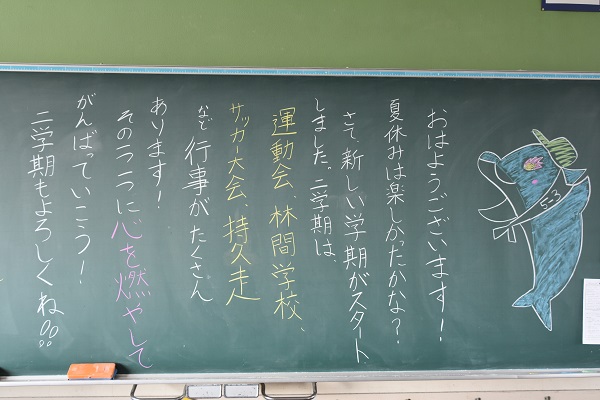 おはようございます！
夏休みは楽しかったかな？
さて、新しい学期がスタート
しました。二学期は、
運動会、林間学校、
サッカー大会、持久走
など行事がたくさん
あります！
その一つ一つに心を燃やして
がんばっていこう！
二学期もよろしくね!!!